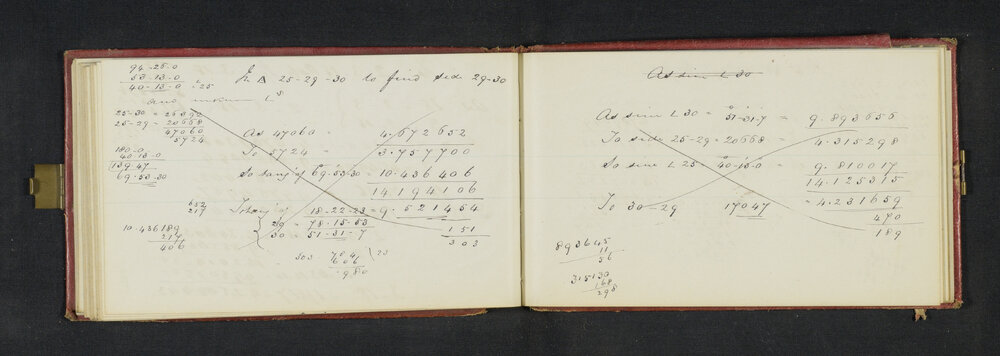 94-25-0
53-13-0
40-13-0 = 25
In Δ 25-29-30 to find side 29-30
25-30 = 26392
25-29 = 20668
47060
5724
180-0
40-13-0
139.47
69.53.30
As 47060 = 4.672652
To 5724 = 3.757700
So tang of 69.53.30 = 10.436406
14194106
To tang of 18-22-23 = 9.521454
29 = 78.15.53
30 = 51-31-7
151
303
652
217
10.436189
217
406
As sine L 30
As sine L 30 = 51-31-7 = 9.893656
To side 25-29 = 20668 = 4.315298
So sine L 25 = 40-13-0 = 9.810017
14.125315
To 30-29 17047 = 4.231659
470
189
893645
11
56
315130
168
298